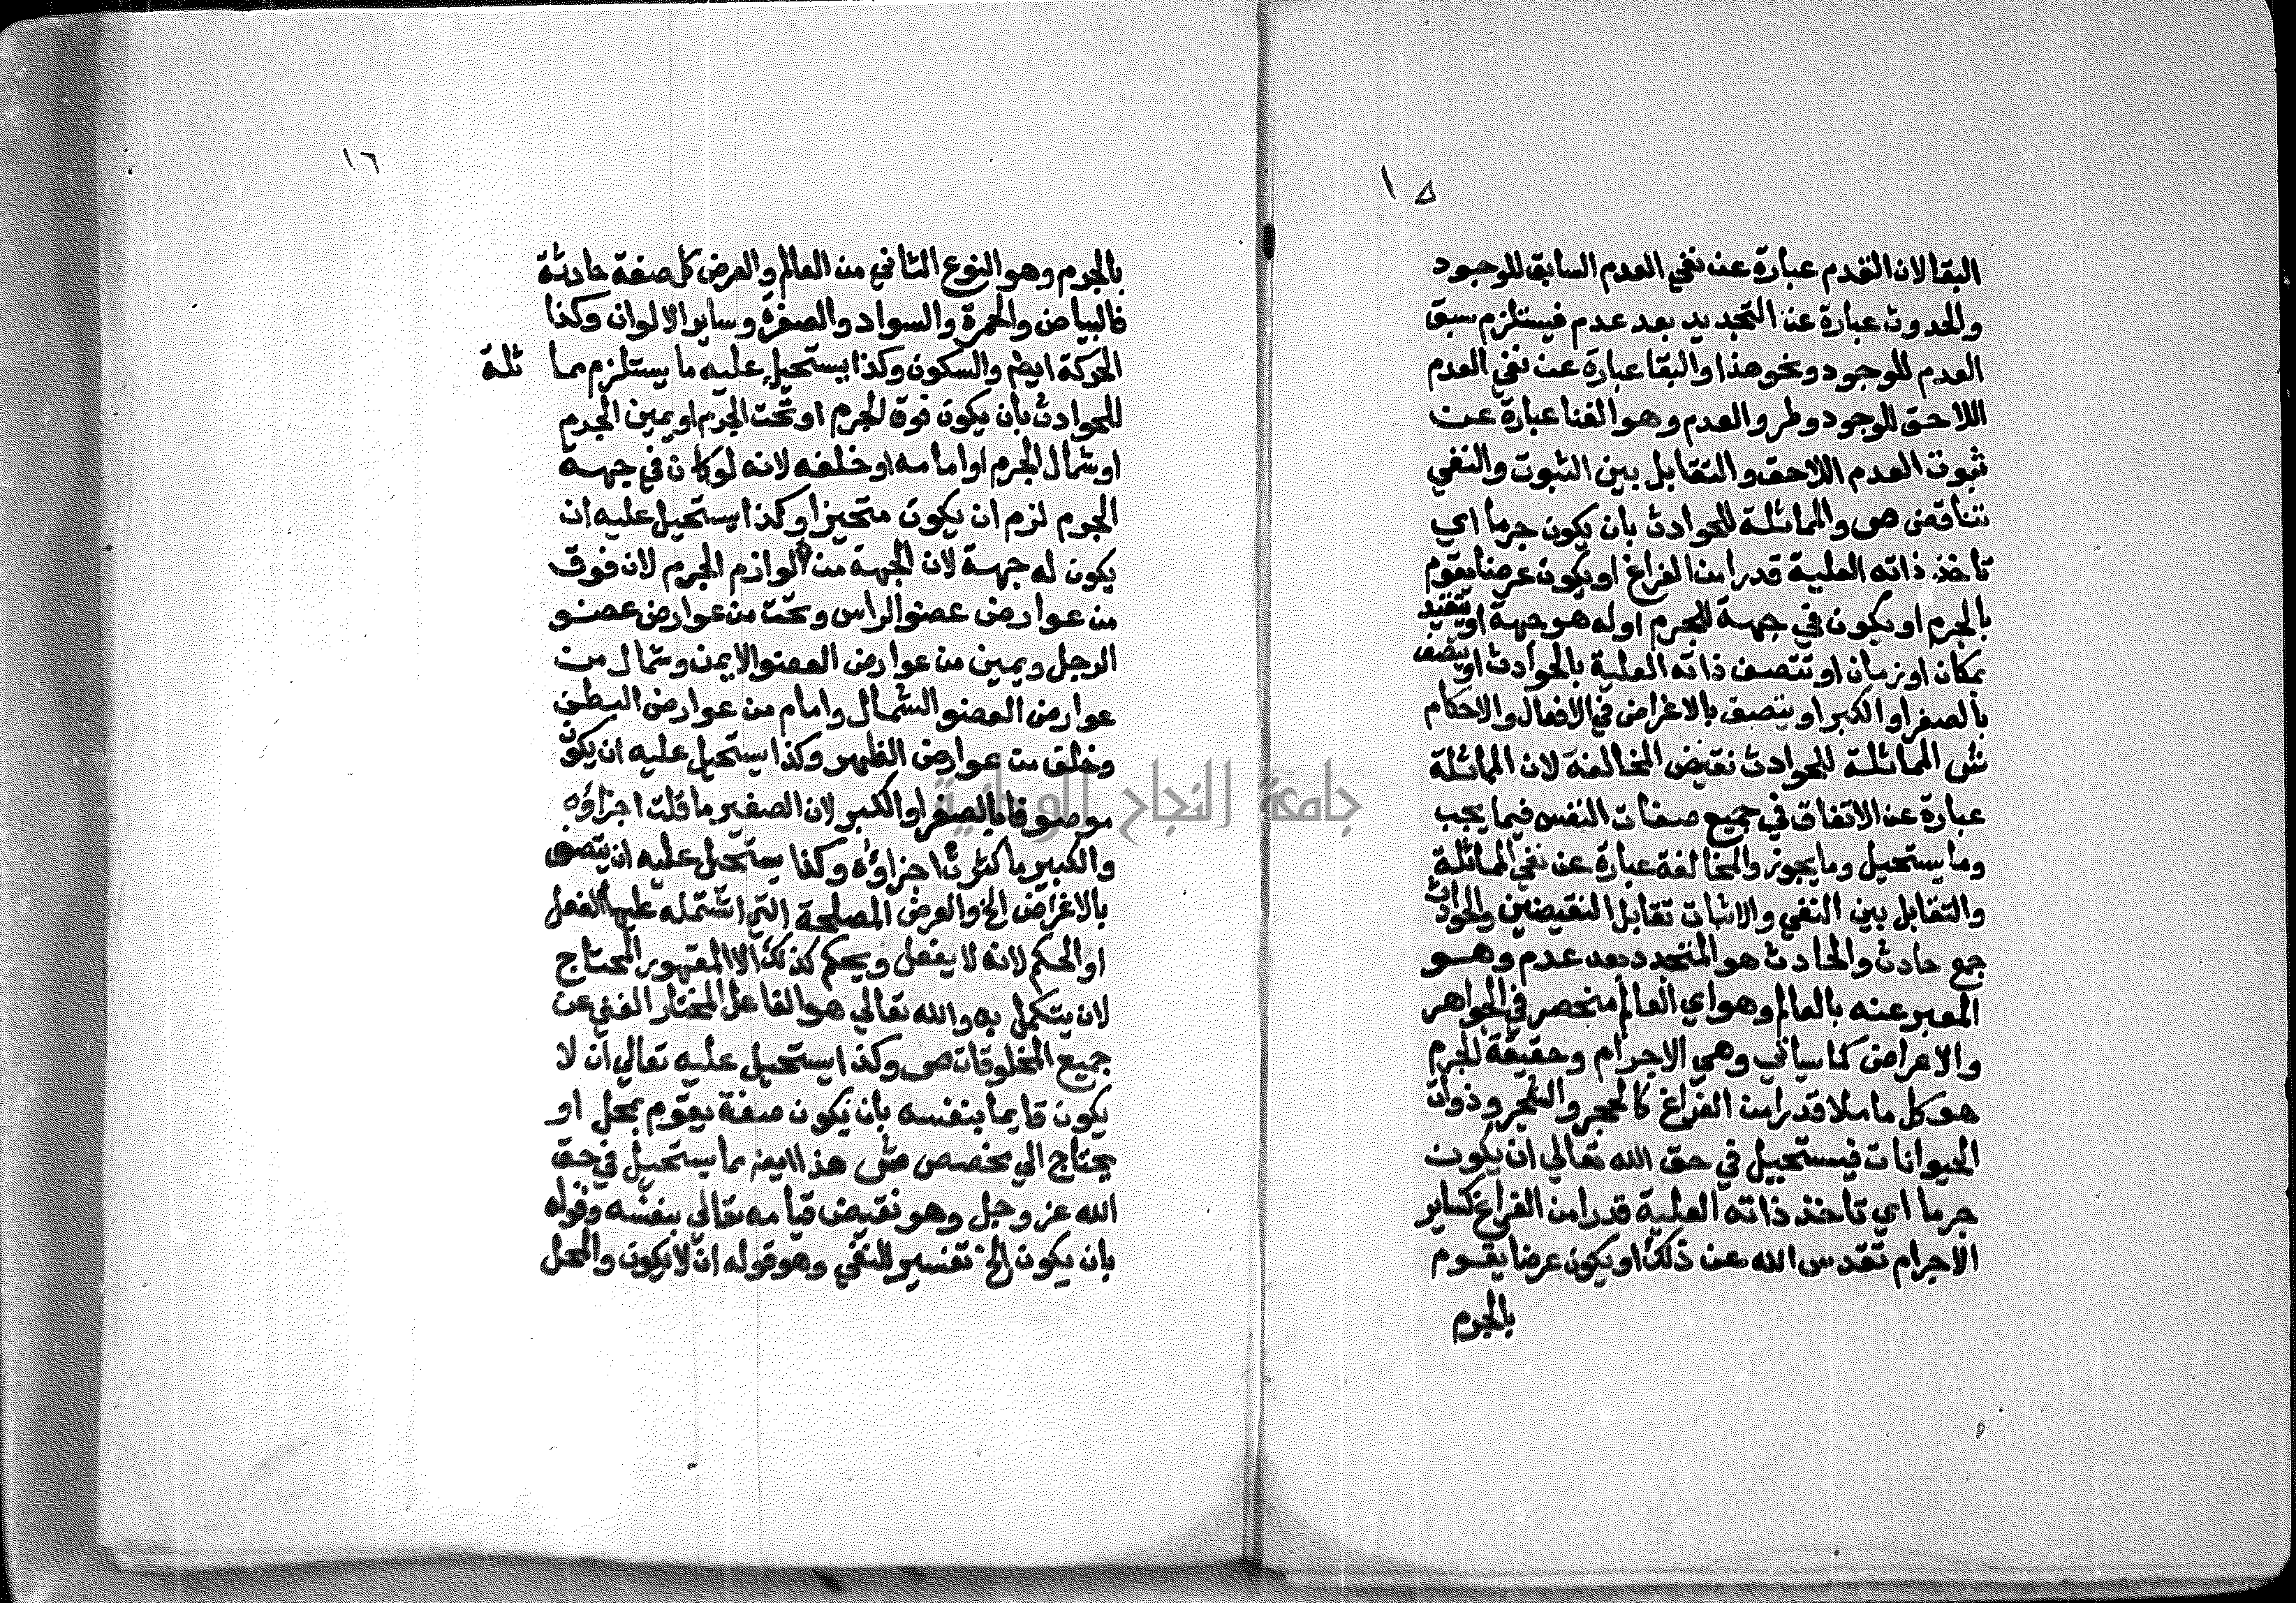 ١٥
البقا لان القدم عبارة عن نفي العدم السابق للوجود
والحدوث عبارة عن التجديد بعد عدم فيستلزم سبق
العدم للوجود ونحو هذا والبقا عبارة عن نفي العدم
اللاحق للوجود وطرو العدم وهو الفنا عبارة عن
ثبوت العدم اللاحق والتقابل بين الثبوت والنفي
تناقض ص والمماثلة للحوادث بان يكون جرما اي
تاخذ ذاته العلية قدرا من الفراغ او يكون عرضا يقوم
بالجرم او يكون في جهة للجرم او له هو جهة او يتقيد
بمكان او زمان او تتصف ذاته العلية بالحوادث او يتصف
بالصغر او الكبر او يتصف بالاغراض في الافعال والاحكام
ش المماثلة للحوادث نقيض المخالفة لان المماثلة
عبارة عن الاتفاق في جميع صفات النفس فيما يجب
وما يستحيل وما يجوز والمخالفة عبارة عن نفي المماثلة
والتقابل بين النفي والاثبات تقابل النقيضين والحوادث
جمع حادث والحادث هو المتجدد بعد عدم وهو
المعبر عنه بالعالم وهو اي العالم منحصر في الجواهر
والاعراض كما سياتي وهي الاجرام وحقيقة الجرم
هو كل ما ملا قدرا من الفراغ كالحجر والشجر وذوات
الحيوانات فيستحيل في حق الله تعالي ان يكون
جرما اي تاخذ ذاته العلية قدرا من الفراغ كساير
الاجرام تقدس الله عن ذلك او يكون عرضا يقوم
بالجرم
١٦
بالجرم وهو النوع الثاني من العالم والعرض كل صفة حادثة
فالبياض والحمرة والسواد والصفرة وساير الالوان وكذا
الحركة ايضا والسكون وكذا يستحيل عليه ما يستلزم مما ثلة
للحوادث بان يكون فوق الجرم او تحت الجرم او يمين الجرم
او شمال الجرم او امامه او خلفه لانه لو كان في جهة
الجرم لزم ان يكون متحيزا وكذا يستحيل عليه ان
يكون له جهة لان الجهة من لوازم الجرم لان فوق
من عوارض عضو الراس وتحت من عوارض عضو
الرجل ويمين من عوارض العضو الايمن وشمال من
عوارض العضو الشمال وامام من عوارض البطن
وخلف من عوارض الظهر وكذا يستحيل عليه ان يكون
موصوفا بالصغر او الكبر لان الصغير ما قلت اجزاؤه
والكبير ما كثرت اجزاؤه وكذا يستحيل عليه ان يتصف
بالاغراض الخ والغرض المصلحة التي اشتمله عليها الفعل
او الحكم لانه لا يفعل ويحكم كذلك الا المقهور المحتاج
لان يتكمل به والله تعالي هو الفاعل المختار الغني عن
جميع المخلوقات ص وكذا يستحيل عليه تعالي ان لا
يكون قايما بنفسه بان يكون صفة يقوم بمحل او
يحتاج الي مخصص ش هذا ايضا مما يستحيل في حق
الله عز وجل وهو نقيض قيامه تعالي بنفسه وقوله
بان يكون الخ تفسير للنفي وهو قوله ان لا يكون والمحل